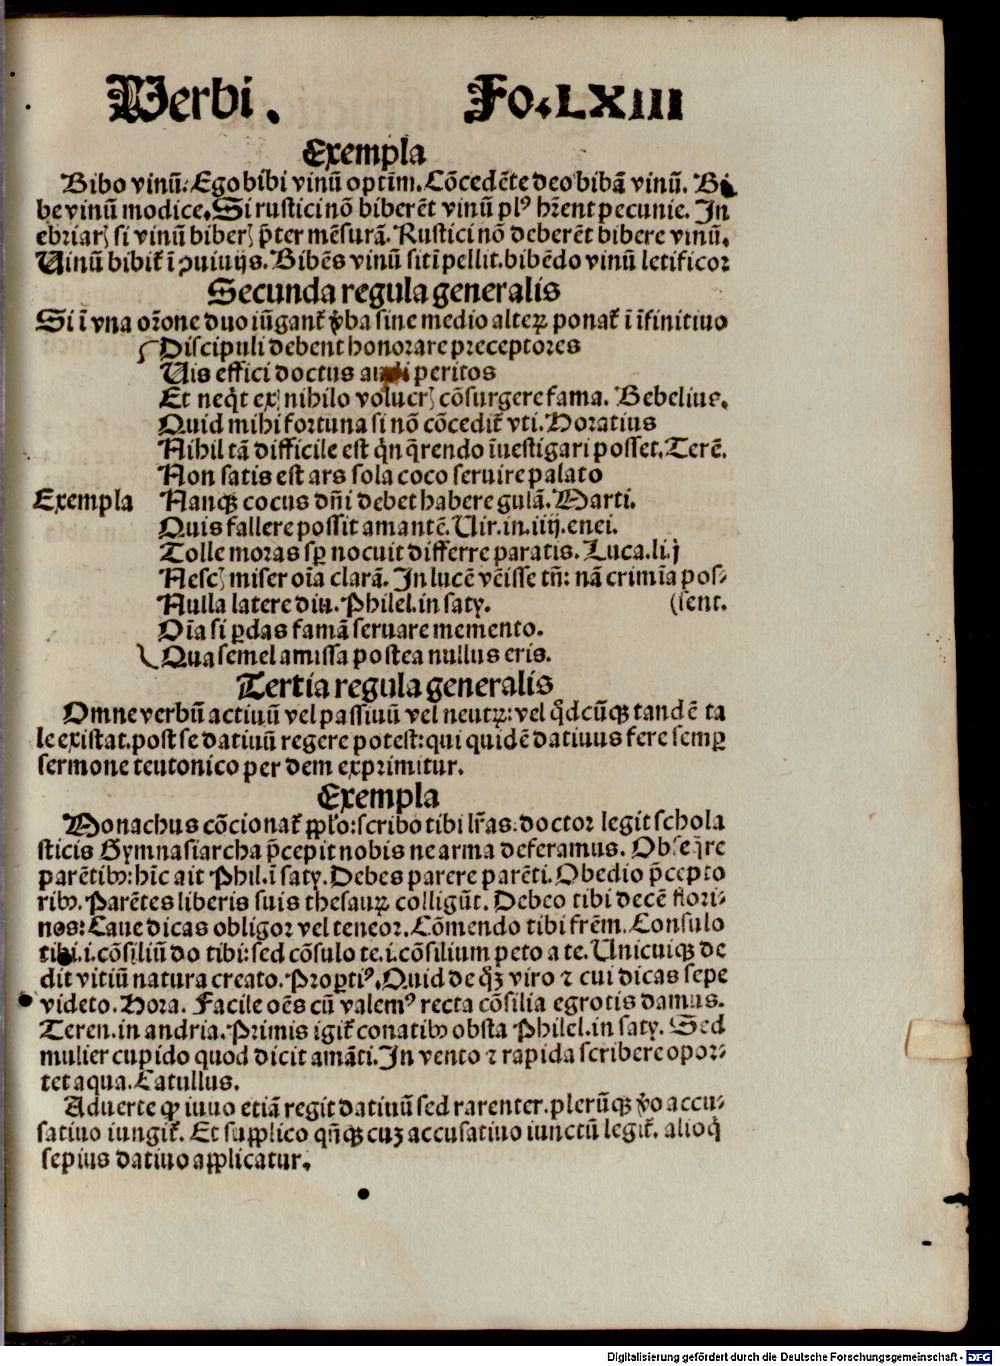 Verbi. Fo. LXIII
Exempla
Bibo vinū. Ego bibi vinū optīm. Cōcedēte deo bibā vinū. Bi
be vinū modice. Si rustici nō biberēt vinū plꝰ hr̄ent pecunie. In
ebriarꝭ si vinū biberꝭ p̄ter mēsurā. Rustici nō deberēt bibere vinū.
Vinū bibit᷑ ī ꝯuiuijs. Bibēs vinū sitī pellit. bibēdo vinū letificor
Secunda regula generalis
Si ī vna or̄one duo iūgant᷑ v̄ba sine medio alteꝝ ponat᷑ ī īfinitiuo
Discipuli debent honorare preceptores
Vis effici doctus audi peritos
Et neq̄t ex nihilo volucrꝭ cōsurgere fama. Bebelius.
Quid mihi fortuna si nō cōcedit᷑ vti. Horatius
Nihil tā difficile est q̄n q̄rendo īuestigari posset. Terē.
Non satis est ars sola coco seruire palato
Exempla Nanqꝫ cocus dn̄i debet habere gulā. Marti.
Quis fallere possit amantē. Vir. in. iiij. enei.
Tolle moras sꝑ nocuit differre paratis. Luca. li. j
Nescꝭ miser oīa clarā. In lucē vēisse tn̄: nā crimīa pos⸗
Nulla latere diu. Philel. in saty. (sent.
Oīa si ꝑdas famā seruare memento.
Qua semel amissa postea nullus eris.
Tertia regula generalis
Omne verbū actiuū vel passiuū vel neutꝝ: vel q̄dcūqꝫ tandē ta
le existat. post se datiuū regere potest: qui quidē datiuus fere semꝑ
sermone teutonico per dem exprimitur.
Exempla
Monachus cōcionat᷑ pplo: scribo tibi lr̄as. doctor legit schola
sticis Gymnasiarcha p̄cepit nobis ne arma deferamus. Obseq̄re
parētibꝰ: hīc ait Phil. ī saty. Debes parere parēti. Obedio p̄cepto
ribꝰ. Parētes liberis suis thesauꝝ colligūt. Debeo tibi decē flori⸗
nos: Caue dicas obligor vel teneor. Cōmendo tibi frēm. Consulo
tibi. i. cōsiliū do tibi: sed cōsulo te. i. cōsilium peto a te. Vnicuiqꝫ de
dit vitiū natura creato. Proꝑtiꝰ. Quid de qꝫ viro ⁊ cui dicas sepe
videto. Hora. Facile oēs cū valemꝰ recta cōsilia egrotis damus.
Teren. in andria. Primis igit᷑ conatibꝰ obsta Philel. in saty. Sed
mulier cupido quod dicit amāti. In vento ⁊ rapida scribere opor⸗
tet aqua. Catullus.
Aduerte ꝙ iuuo etiā regit datiuū sed rarenter. plerūqꝫ v̄o accu⸗
satiuo iungit᷑. Et supplico qn̄qꝫ cuꝫ accusatiuo iunctū legit᷑. alioq̄
sepius datiuo applicatur.
Digitalisierung gefördert durch die Deutsche Forschungsgemeinschaft - DFG